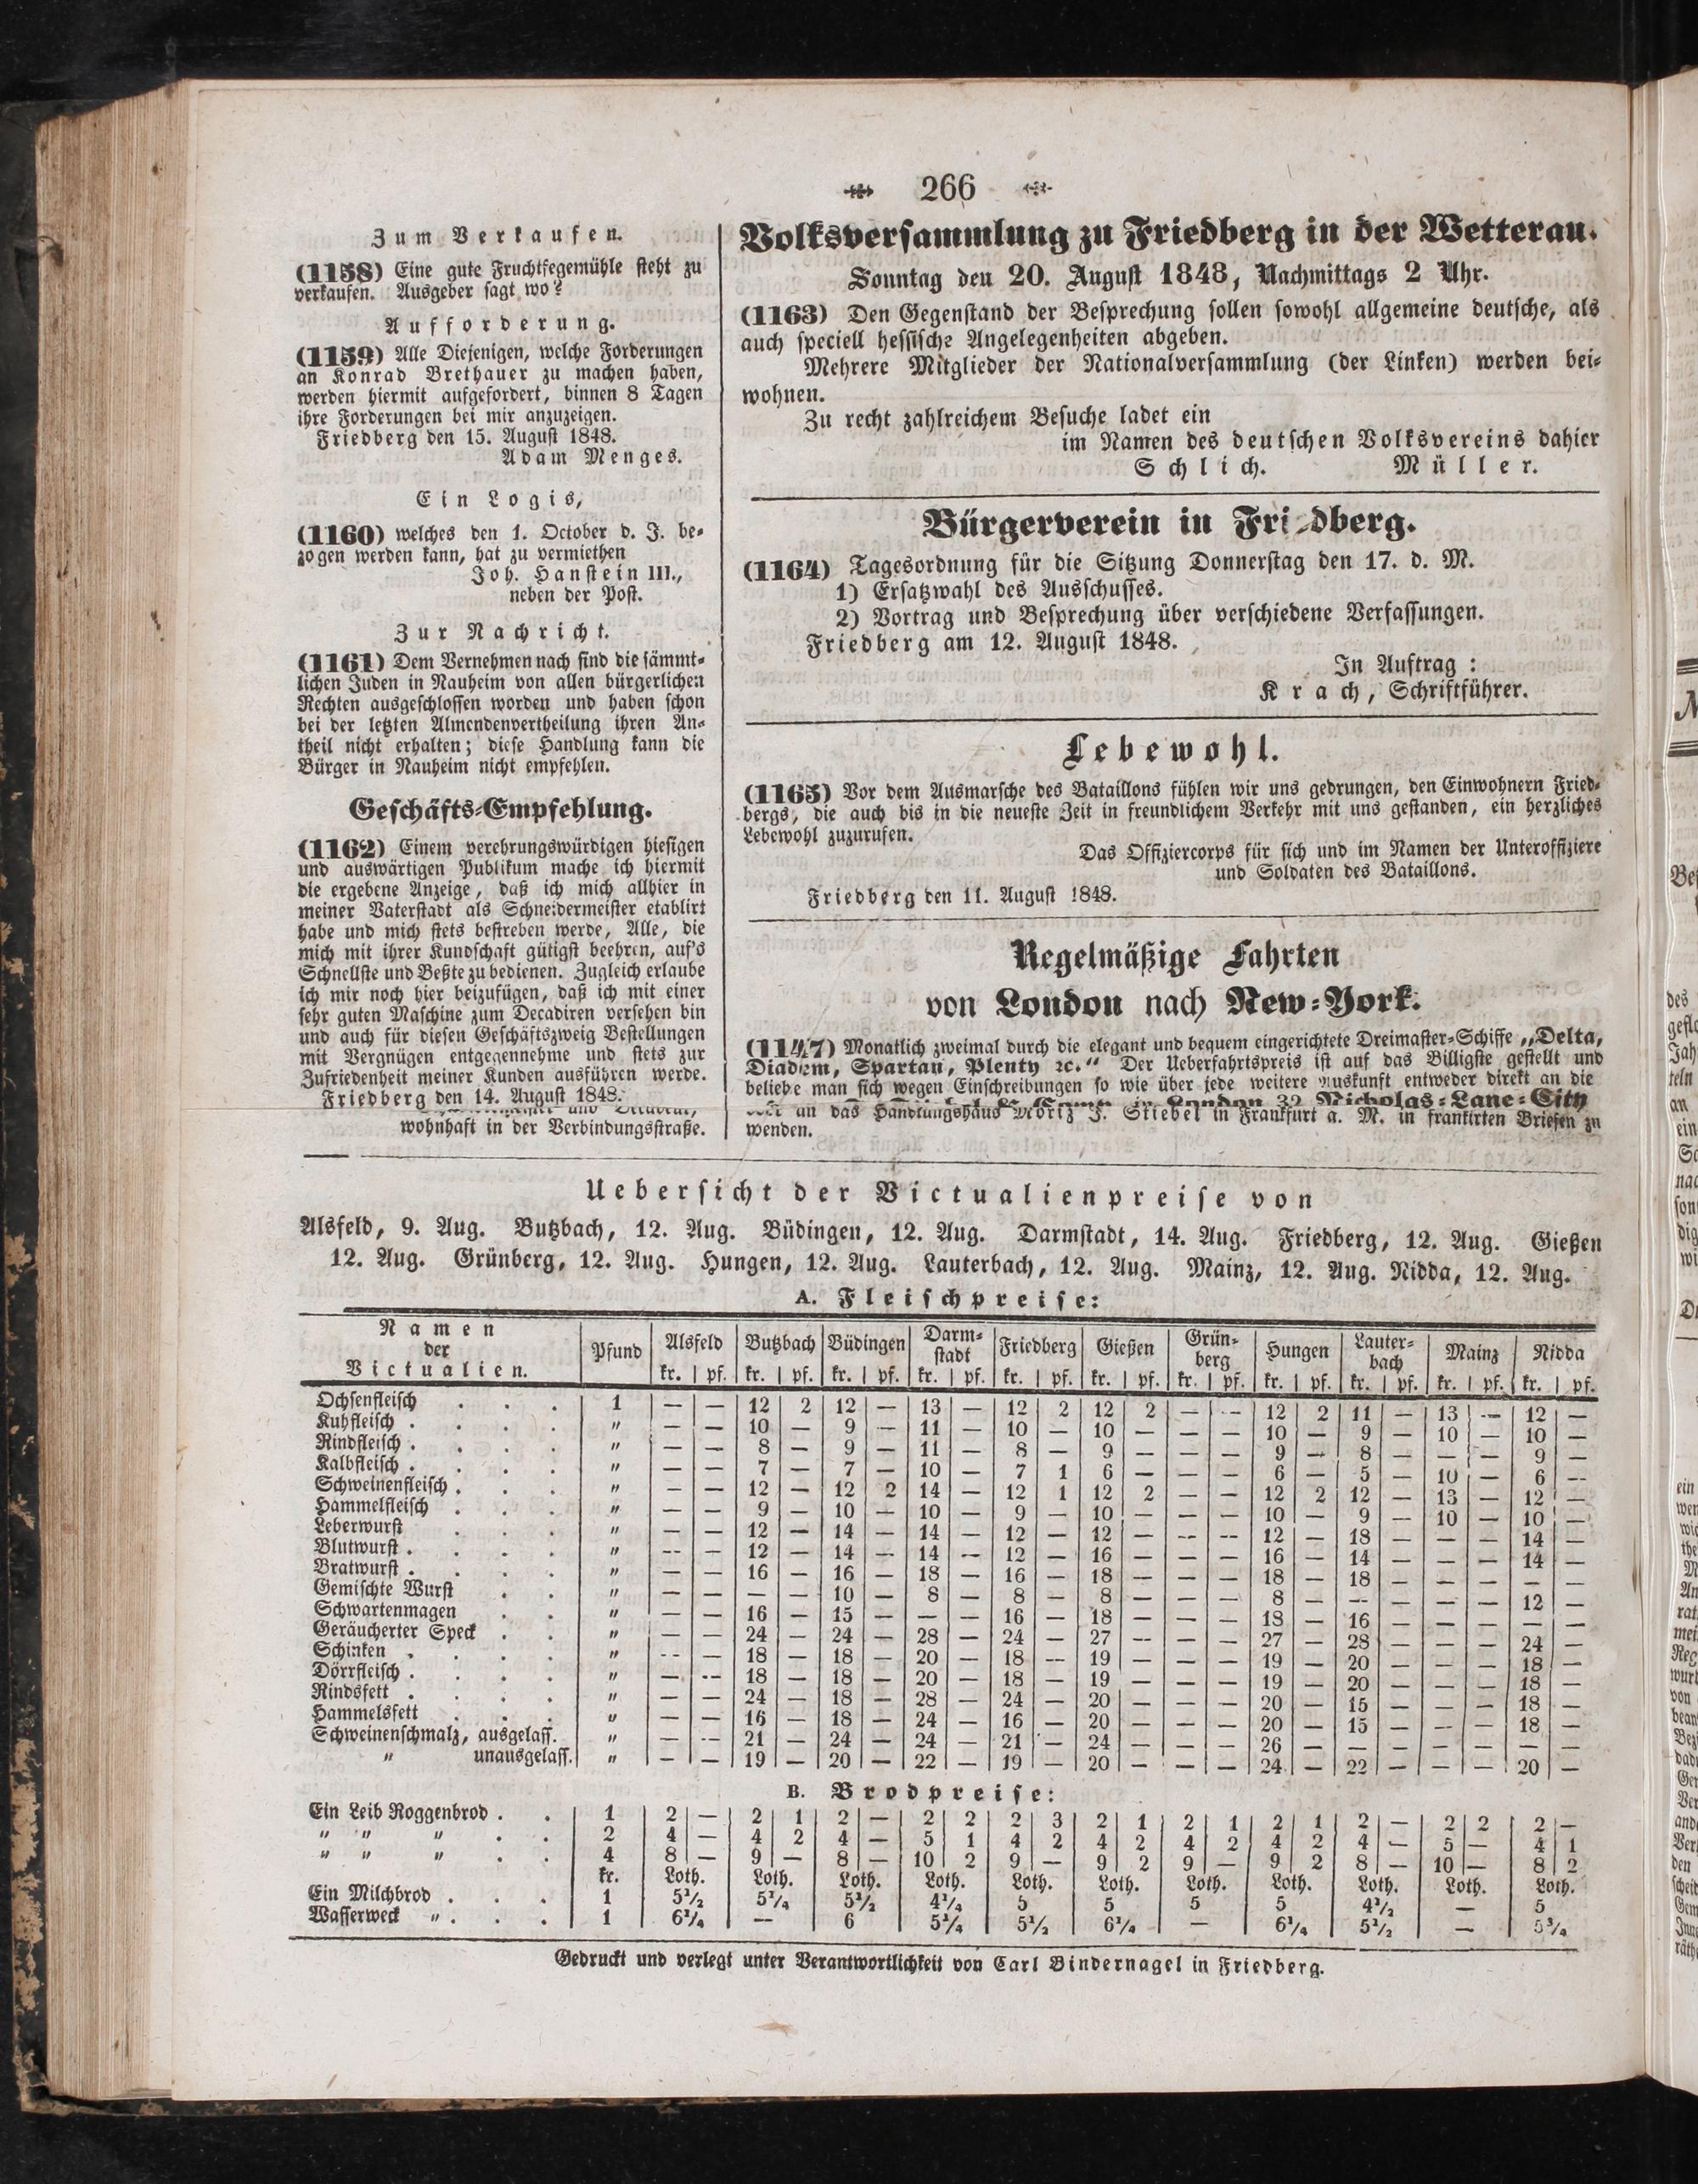 266
Zum Verkaufen.
(1158) Eine gute Fruchtfegemühle steht zu
verkaufen. Ausgeber sagt wo?
Aufforderung.
(1159) Alle Diejenigen, welche Forderungen
an Konrad Brethauer zu machen haben,
werden hiermit aufgefordert, binnen 8 Tagen
ihre Forderungen bei mir anzuzeigen.
Friedberg den 15. August 1848.
Adam Menges.
Ein Logis,
(1160) welches den 1. October d. J. be-
zogen werden kann, hat zu vermiethen
Joh. Hanstein III.,
neben der Post.
Zur Nachricht.
(1161) Dem Vernehmen nach sind die sämmt-
lichen Juden in Nauheim von allen bürgerlichen
Rechten ausgeschlossen worden und haben schon
bei der letzten Almendenvertheilung ihren An-
theil nicht erhalten; diese Handlung kann die
Bürger in Nauheim nicht empfehlen.
Geschäfts-Empfehlung.
(1162) Einem verehrungswürdigen hiesigen
und auswärtigen Publikum mache ich hiermit
die ergebene Anzeige, daß ich mich allhier in
meiner Vaterstadt als Schneidermeister etablirt
habe und mich stets bestreben werde, Alle, die
mich mit ihrer Kundschaft gütigst beehren, auf's
Schnellste und Beßte zu bedienen. Zugleich erlaube
ich mir noch hier beizufügen, daß ich mit einer
sehr guten Maschine zum Decadiren versehen bin
und auch für diesen Geschäftszweig Bestellungen
mit Vergnügen entgegennehme und stets zur
Zufriedenheit meiner Kunden ausführen werde.
Friedberg den 14. August 1848.
wohnhaft in der Verbindungsstraße.
Volksversammlung zu Friedberg in der Wetterau.
Sonntag den 20. August 1848, Nachmittags 2 Uhr.
(1163) Den Gegenstand der Besprechung sollen sowohl allgemeine deutsche, als
auch speciell hessische Angelegenheiten abgeben.
Mehrere Mitglieder der Nationalversammlung (der Linken) werden bei-
wohnen.
Zu recht zahlreichem Besuche ladet ein
im Namen des deutschen Volksvereins dahier
Schlich. Müller.
Bürgerverein in Fri dberg.
(1164) Tagesordnung für die Sitzung Donnerstag den 17. d. M.
1) Ersatzwahl des Ausschusses.
2) Vortrag und Besprechung über verschiedene Verfassungen.
Friedberg am 12. August 1848.
In Auftrag:
Krach, Schriftführer.
Lebewohl.
(1165) Vor dem Ausmarsche des Bataillons fühlen wir uns gedrungen, den Einwohnern Fried-
bergs, die auch bis in die neueste Zeit in freundlichem Verkehr mit uns gestanden, ein herzliches
Lebewohl zuzurufen.
Das Offiziercorps für sich und im Namen der Unteroffiziere
und Soldaten des Bataillons.
Friedberg den 11. August 1848.
Regelmäßige Fahrten
von London nach New-York.
(1147) Monatlich zweimal durch die elegant und bequem eingerichtete Dreimaster-Schiffe „Delta,
Diadem, Spartan, Plenty ꝛc.“ Der Ueberfahrtspreis ist auf das Billigste gestellt und
beliebe man sich wegen Einschreibungen so wie über jede weitere Auskunft entweder direkt an die
in London 32 Nicholas-Lane-City
an das Handlungshaus Moritz J. Stiebel in Frankfurt a. M. in frankirten Briefen zu
wenden.
Uebersicht der Victualienpreise von
Alsfeld, 9. Aug. Butzbach, 12. Aug. Büdingen, 12. Aug. Darmstadt, 14. Aug. Friedberg, 12. Aug. Gießen
12. Aug. Grünberg, 12. Aug. Hungen, 12. Aug. Lauterbach, 12. Aug. Mainz, 12. Aug. Nidda, 12. Aug.
A. Fleischpreise:
Namen der Victualien. Pfund Alsfeld Butzbach Büdingen Darm-stadt Friedberg Gießen Grün-berg Hungen Lauter-bach Mainz Nidda
kr. pf. kr. pf. kr. pf. kr. pf. kr. pf. kr. pf. kr. pf. kr. pf. kr. pf. kr. pf. kr. pf.
Ochsenfleisch . . . 1 — — 12 2 12 — 13 — 12 2 12 2 — — 12 2 11 — 13 — 12 —
Kuhfleisch . . . . " — — 10 — 9 — 11 — 10 — 10 — — — 10 — 9 — 10 — 10 —
Rindfleisch . . . . " — — 8 — 9 — 11 — 8 — 9 — — — 9 — 8 — — — 9 —
Kalbfleisch . . . . " — — 7 — 7 — 10 — 7 1 6 — — — 6 — 5 — 10 — 6 —
Schweinenfleisch . . . " — — 12 — 12 2 14 — 12 1 12 2 — — 12 2 12 — 13 — 12 —
Hammelfleisch . . . " — — 9 — 10 — 10 — 9 — 10 — — — 10 — 9 — 10 — 10 —
Leberwurst . . . " — — 12 — 14 — 14 — 12 — 12 — — — 12 — 18 — — — 14 —
Blutwurst . . . . " — — 12 — 14 — 14 — 12 — 16 — — — 16 — 14 — — — 14 —
Bratwurst . . . . " — — 16 — 16 — 18 — 16 — 18 — — — 18 — 18 — — — — —
Gemischte Wurst . . " — — — — 10 — 8 — 8 — 8 — — — 8 — — — — — 12 —
Schwartenmagen . . " — — 16 — 15 — — — 16 — 18 — — — 18 — 16 — — — — —
Geräucherter Speck . . " — — 24 — 24 — 28 — 24 — 27 — — — 27 — 28 — — — 24 —
Schinken . . . . " — — 18 — 18 — 20 — 18 — 19 — — — 19 — 20 — — — 18 —
Dörrfleisch . . . . " — — 18 — 18 — 20 — 18 — 19 — — — 19 — 20 — — — 18 —
Rindsfett . . . . " — — 24 — 18 — 28 — 24 — 20 — — — 20 — 15 — — — 18 —
Hammelsfett . . . " — — 16 — 18 — 24 — 16 — 20 — — — 20 — 15 — — — 18 —
Schweinenschmalz, ausgelass. " — — 21 — 24 — 24 — 21 — 24 — — — 26 — — — — — — —
" unausgelass. " — — 19 — 20 — 22 — 19 — 20 — — — 24 — 22 — — — 20 —
B. Brodpreise:
Ein Leib Roggenbrod . . 1 2 — 2 1 2 — 2 2 2 3 2 1 2 1 2 1 2 — 2 2 2 —
" " " . . 2 4 — 4 2 4 — 5 1 4 2 4 2 4 2 4 2 4 — 5 — 4 1
" " " . . 4 8 — 9 — 8 — 10 2 9 — 9 2 9 — 9 2 8 — 10 — 8 2
kr. Loth. Loth. Loth. Loth. Loth. Loth. Loth. Loth. Loth. Loth. Loth.
Ein Milchbrod . . . 1 5½ 5¼ 5½ 4¼ 5 5 5 5 4½ — 5
Wasserweck " . . . 1 6¼ — 6 5¼ 5½ 6¼ — 6¼ 5½ — 5¾
Gedruckt und verlegt unter Verantwortlichkeit von Carl Bindernagel in Friedberg.